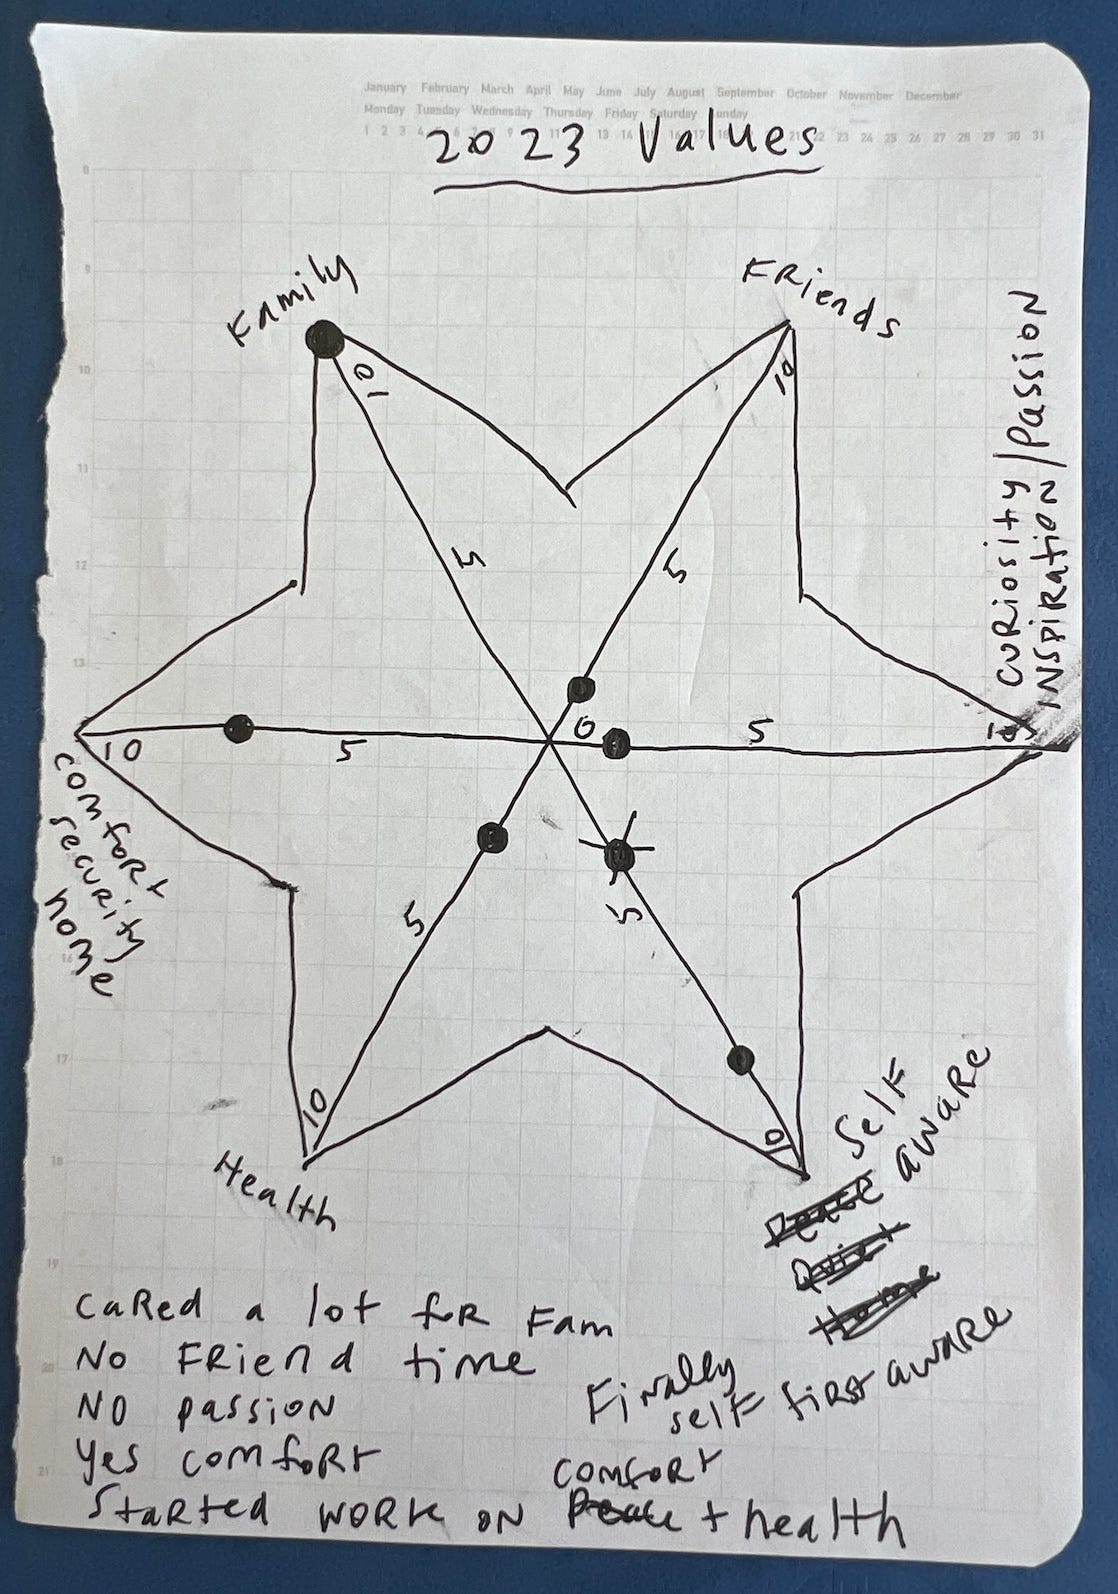 January February March April May June July August September October November December
Monday Tuesday Wednesday Thursday Friday Saturday Sunday
1 2 3 4 9 11 13 14 22 23 24 25 26 27 28 29 30 31
2023 Values
8
9
10
11
12
13
17
18
19
20
21
Family
Friends
10
10
CURiosity/Passion
INSPIRatioN
5
5
0
10
5
5
10
comfort
security
home
5
5
10
10
Health
Self
aware
Peace
Quiet
Home
caRed a lot foR Fam
No FRiend time
NO passion
Yes comfoRt
StaRted woRk on Peace + health
comfoRt
Finally
self first aware